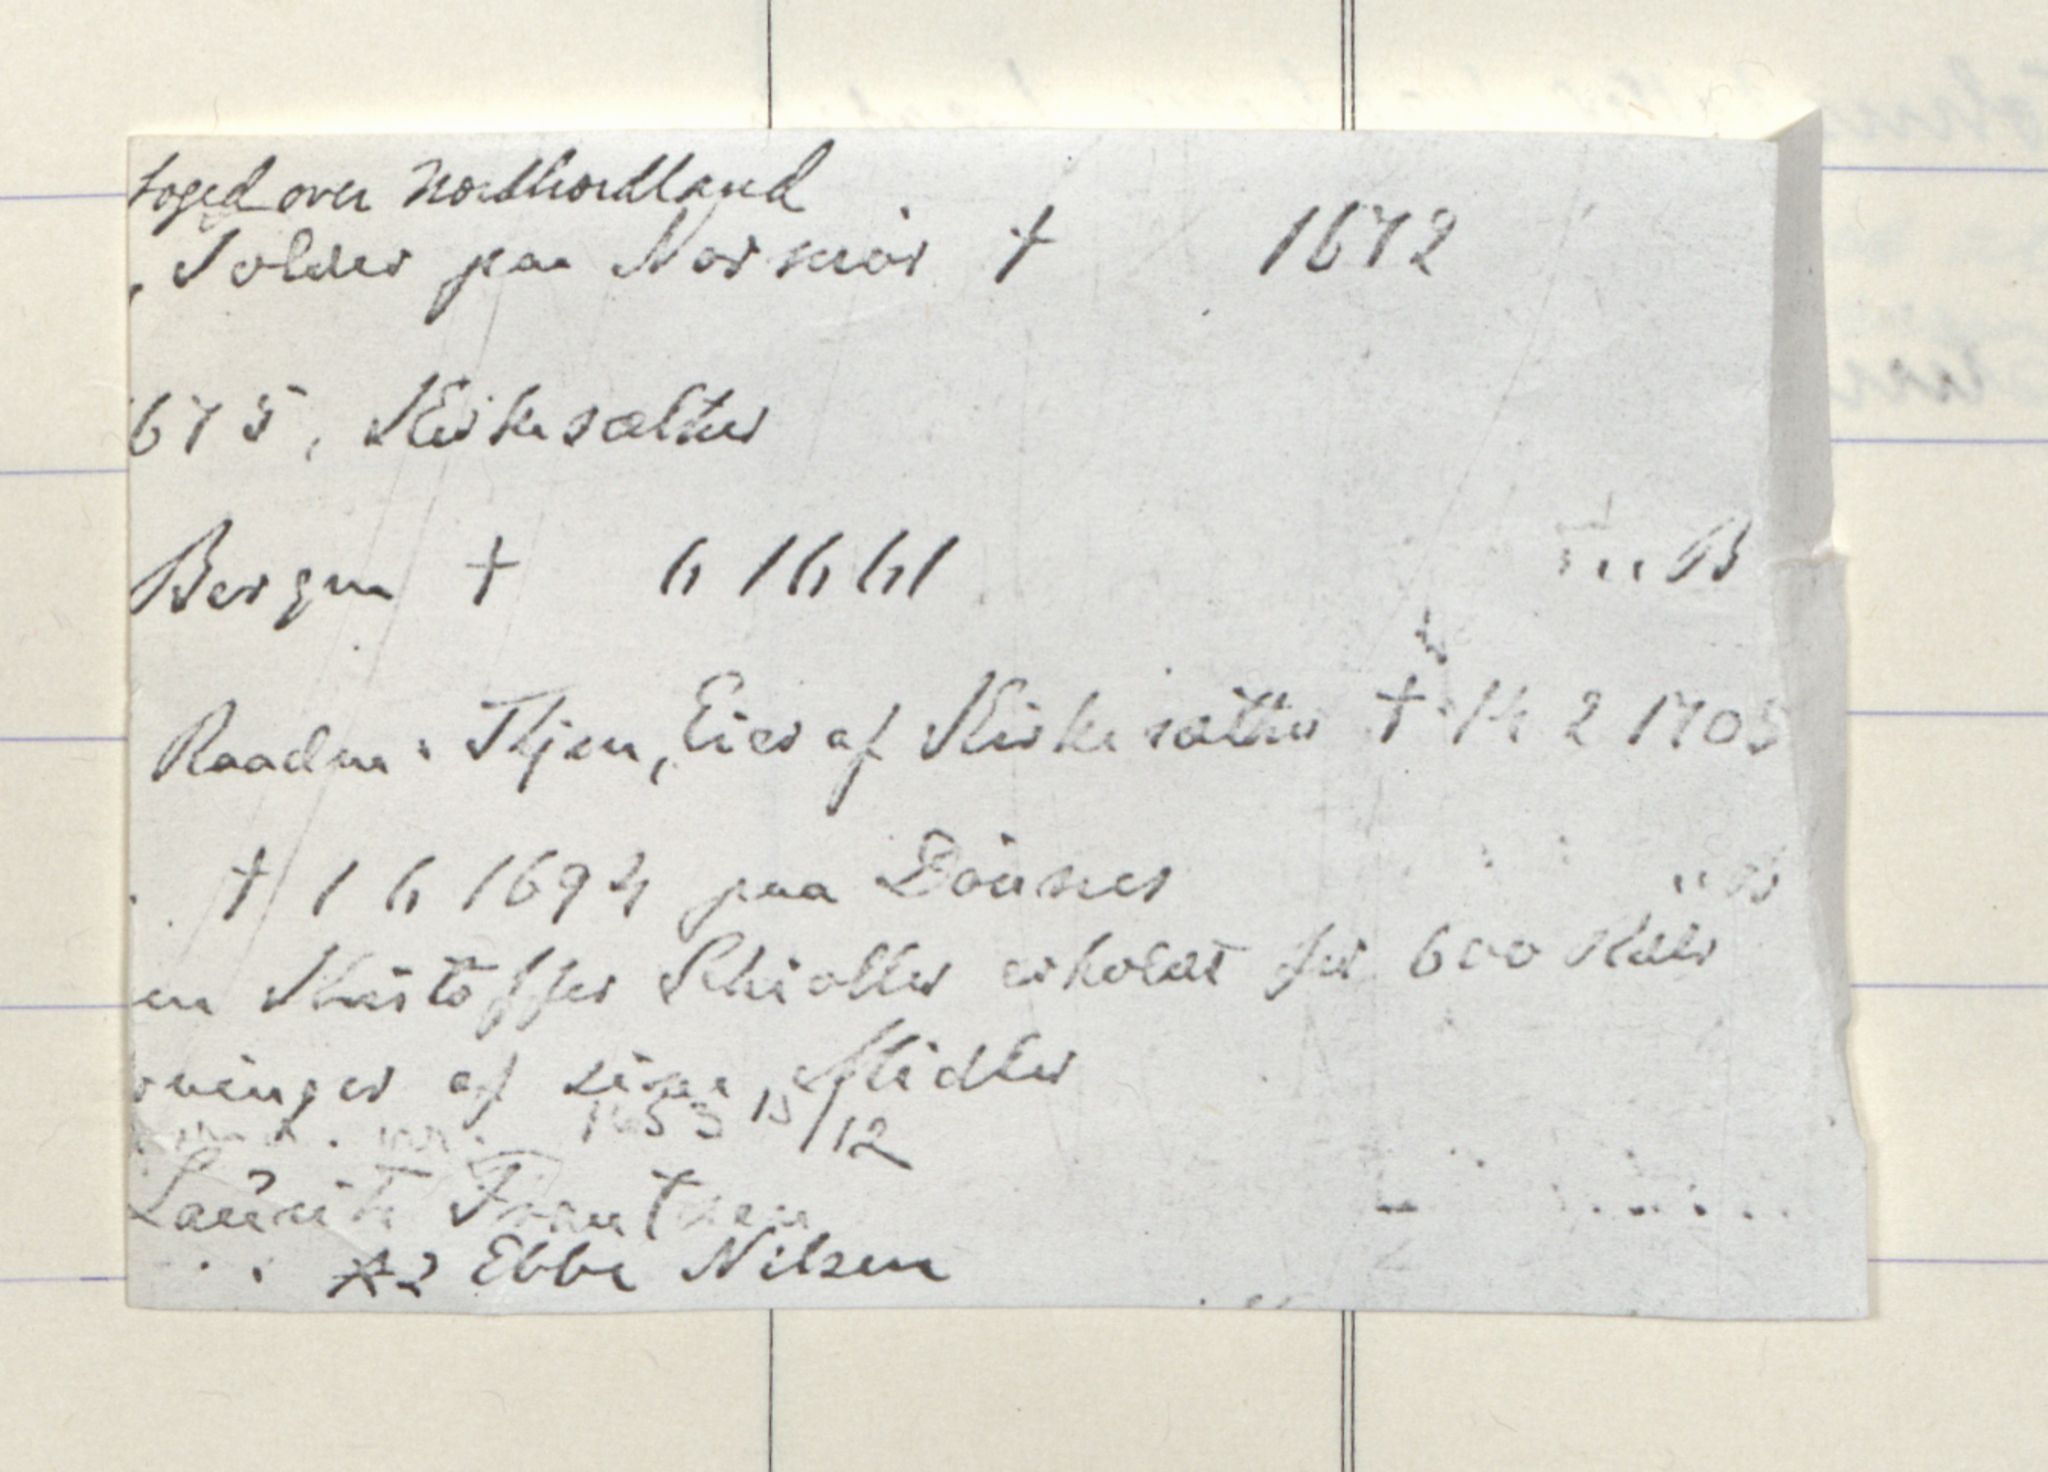 foged over Nordhordland
, Tolder paa Normör † 1672
675, Kirkesæther
Bergen † 6 1661 B
Raadm. Thjem, Eier af Kirkesæther † 14 2 1705
† 1 6 1694 paa Dönnes
en Kristoffer Schiøller erholdt for 600 Rdlr
af sine Midler
1653 15/12
Laurits Frantsen
*2 Ebbe Nilsen